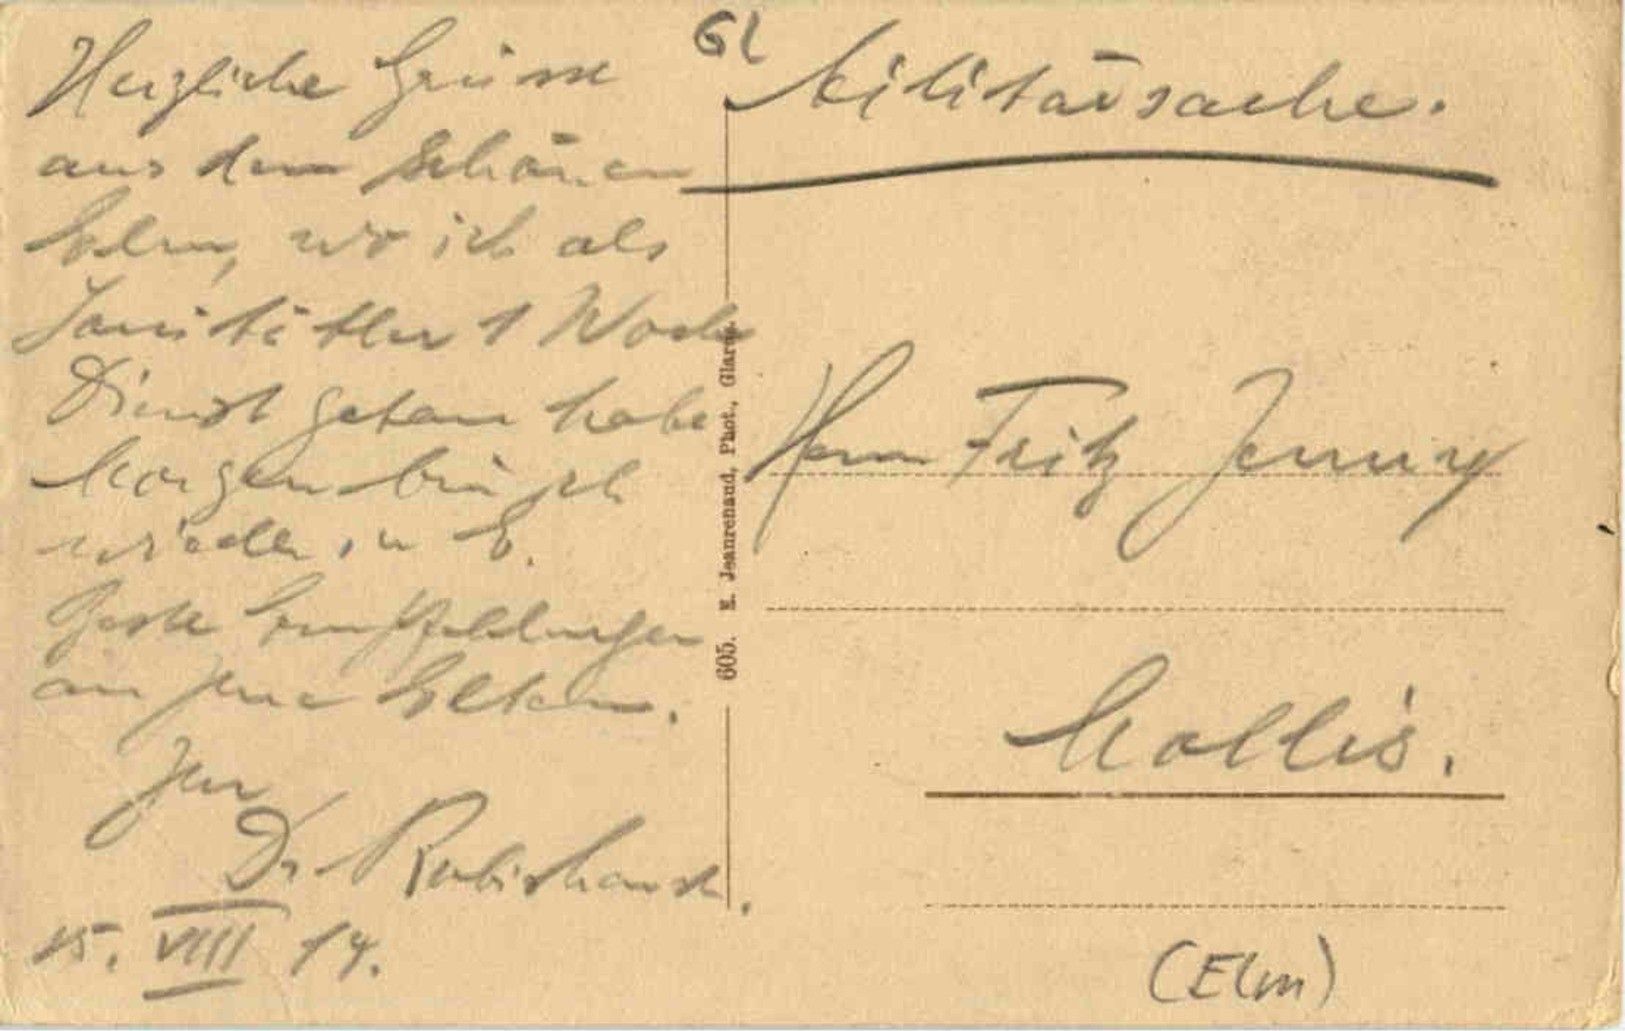 Herzliche Grüsse
aus dem schönen
Elm, wo ich als
Sanitätler 1 Woche
Dienst getan habe
Morgen bin ich
wieder in E.
Beste Empfehlungen
an Ihre Eltern.
Ihr
Dr
15. VIII 14.
605. E. Jeanrenaud, Phot., Glarus.
GL
Militärsache.
Herrn Fritz Jenny
Mollis.
(Elm)